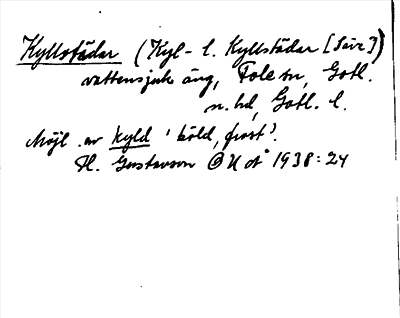 Kyllstädar (Kyl- l. Kyllstädar [Säve])
vattensjuk äng, Fole sn, Gotl.
n. hd, Gotl. l.
Möjl. av kyld 'köld, frost'.
H. Gustavson 1938:24